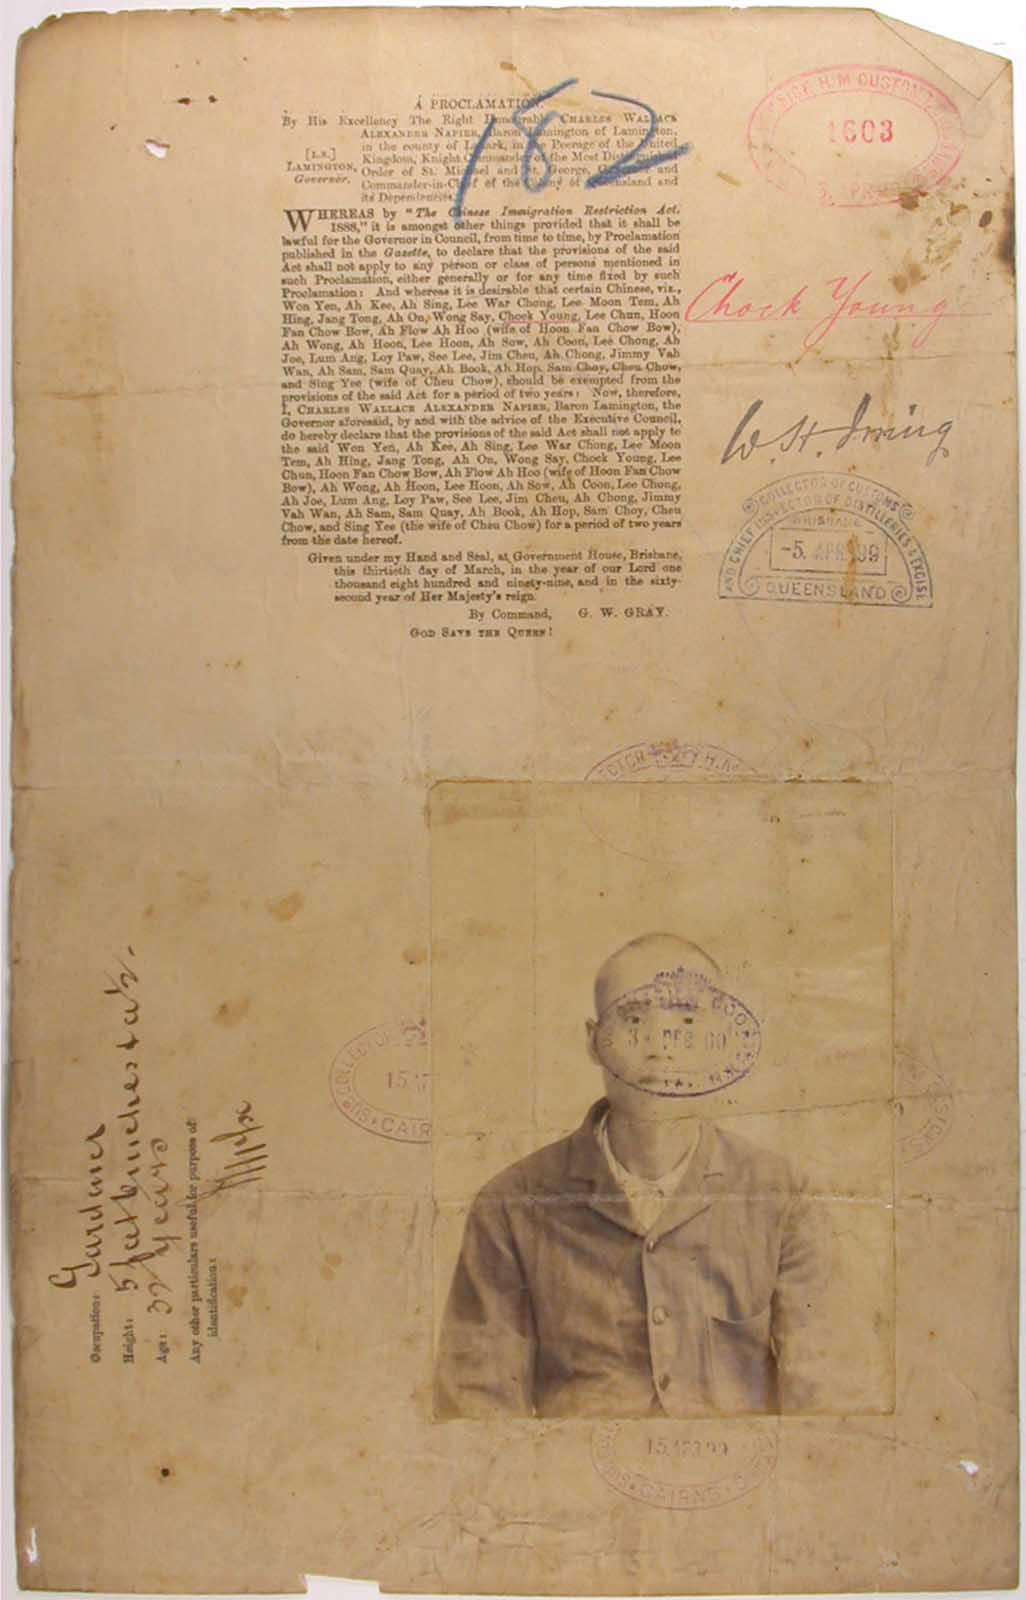 182
A PROCLAMATION.
By His Excellency The Right Honourable CHARLES WALLACE
ALEXANDER NAPIER, Baron Lamington of Lamington,
in the county of Lanark, in the Peerage of the United
Kingdom, Knight Commander of the Most Distinguished
Order of St. Michael and St. George, Governor and
Commander-in-Chief of the Colony of Queensland and
its Dependencies.
[L.S.]
LAMINGTON,
Governor.
WHEREAS by "The Chinese Immigration Restriction Act,
1888," it is amongst other things provided that it shall be
lawful for the Governor in Council, from time to time, by Proclamation
published in the Gazette, to declare that the provisions of the said
Act shall not apply to any person or class of persons mentioned in
such Proclamation, either generally or for any time fixed by such
Proclamation: And whereas it is desirable that certain Chinese, viz.,
Won Yen, Ah Kee, Ah Sing, Lee War Chong, Lee Moon Tem, Ah
Hing, Jang Tong, Ah On, Wong Say, Chock Young, Lee Chun, Hoon
Fan Chow Bow, Ah Flow Ah Hoo (wife of Hoon Fan Chow Bow),
Ah Wong, Ah Hoon, Lee Hoon, Ah Sow, Ah Coon, Lee Chong, Ah
Joe, Lum Ang, Loy Paw, See Lee, Jim Cheu, Ah Chong, Jimmy Vah
Wan, Ah Sam, Sam Quay, Ah Book, Ah Hop, Sam Choy, Cheu Chow,
and Sing Yee (wife of Cheu Chow), should be exempted from the
provisions of the said Act for a period of two years: Now, therefore,
I, CHARLES WALLACE ALEXANDER NAPIER, Baron Lamington, the
Governor aforesaid, by and with the advice of the Executive Council,
do hereby declare that the provisions of the said Act shall not apply to
the said Won Yen, Ah Kee, Ah Sing, Lee War Chong, Lee Moon
Tem, Ah Hing, Jang Tong, Ah On, Wong Say, Chock Young, Lee
Chun, Hoon Fan Chow Bow, Ah Flow Ah Hoo (wife of Hoon Fan Chow
Bow), Ah Wong, Ah Hoon, Lee Hoon, Ah Sow, Ah Coon, Lee Chong,
Ah Joe, Lum Ang, Loy Paw, See Lee, Jim Cheu, Ah Chong, Jimmy
Vah Wan, Ah Sam, Sam Quay, Ah Book, Ah Hop, Sam Choy, Cheu
Chow, and Sing Yee (the wife of Cheu Chow) for a period of two years
from the date hereof.
Given under my Hand and Seal, at Government House, Brisbane,
this thirtieth day of March, in the year of our Lord one
thousand eight hundred and ninety-nine, and in the sixty-
second year of Her Majesty's reign.
By Command, G. W. GRAY.
GOD SAVE THE QUEEN!
H.M CUSTOMS
1603
Chock Young
W. H. Irving
COLLECTOR OF CUSTOMS
AND CHIEF INSPECTOR OF DISTILLERIES & EXCISE
BRISBANE
-5. APR. 99
QUEENSLAND
COLLECTOR
CAIRNS
15 APR 99
CAIRNS
Occupation: Gardener
Height: 5 feet
Age: years
Any other particulars useful for purpose of
identification: